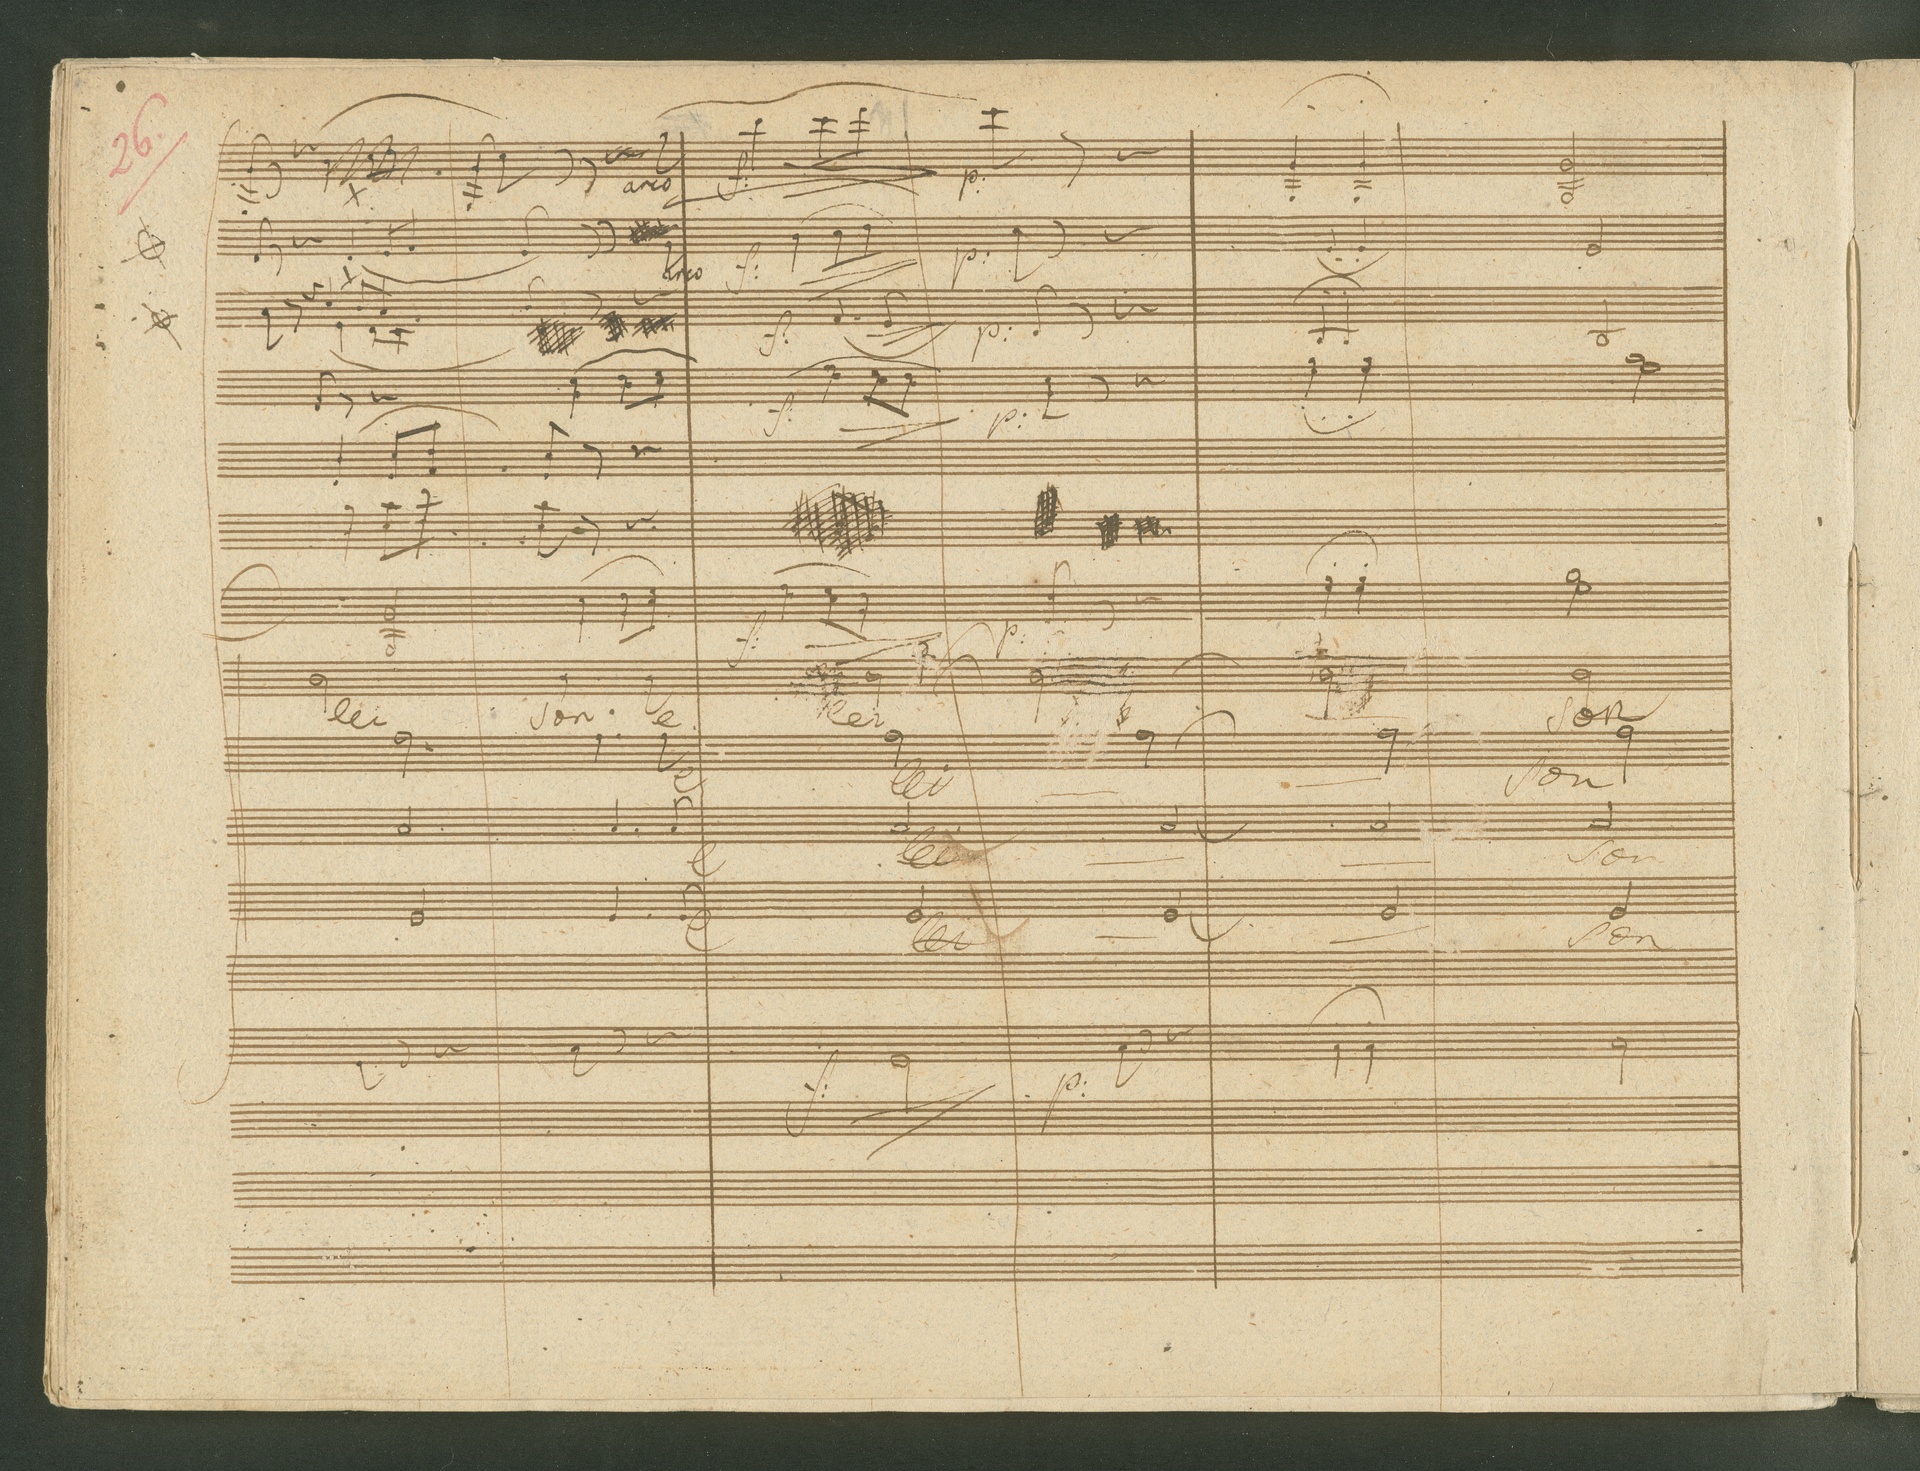 26.
arco
f: p:
arco f: p:
f: p:
f: p:
f: p:
lei son e lei son
e lei son
e lei son
e lei son
f: p: